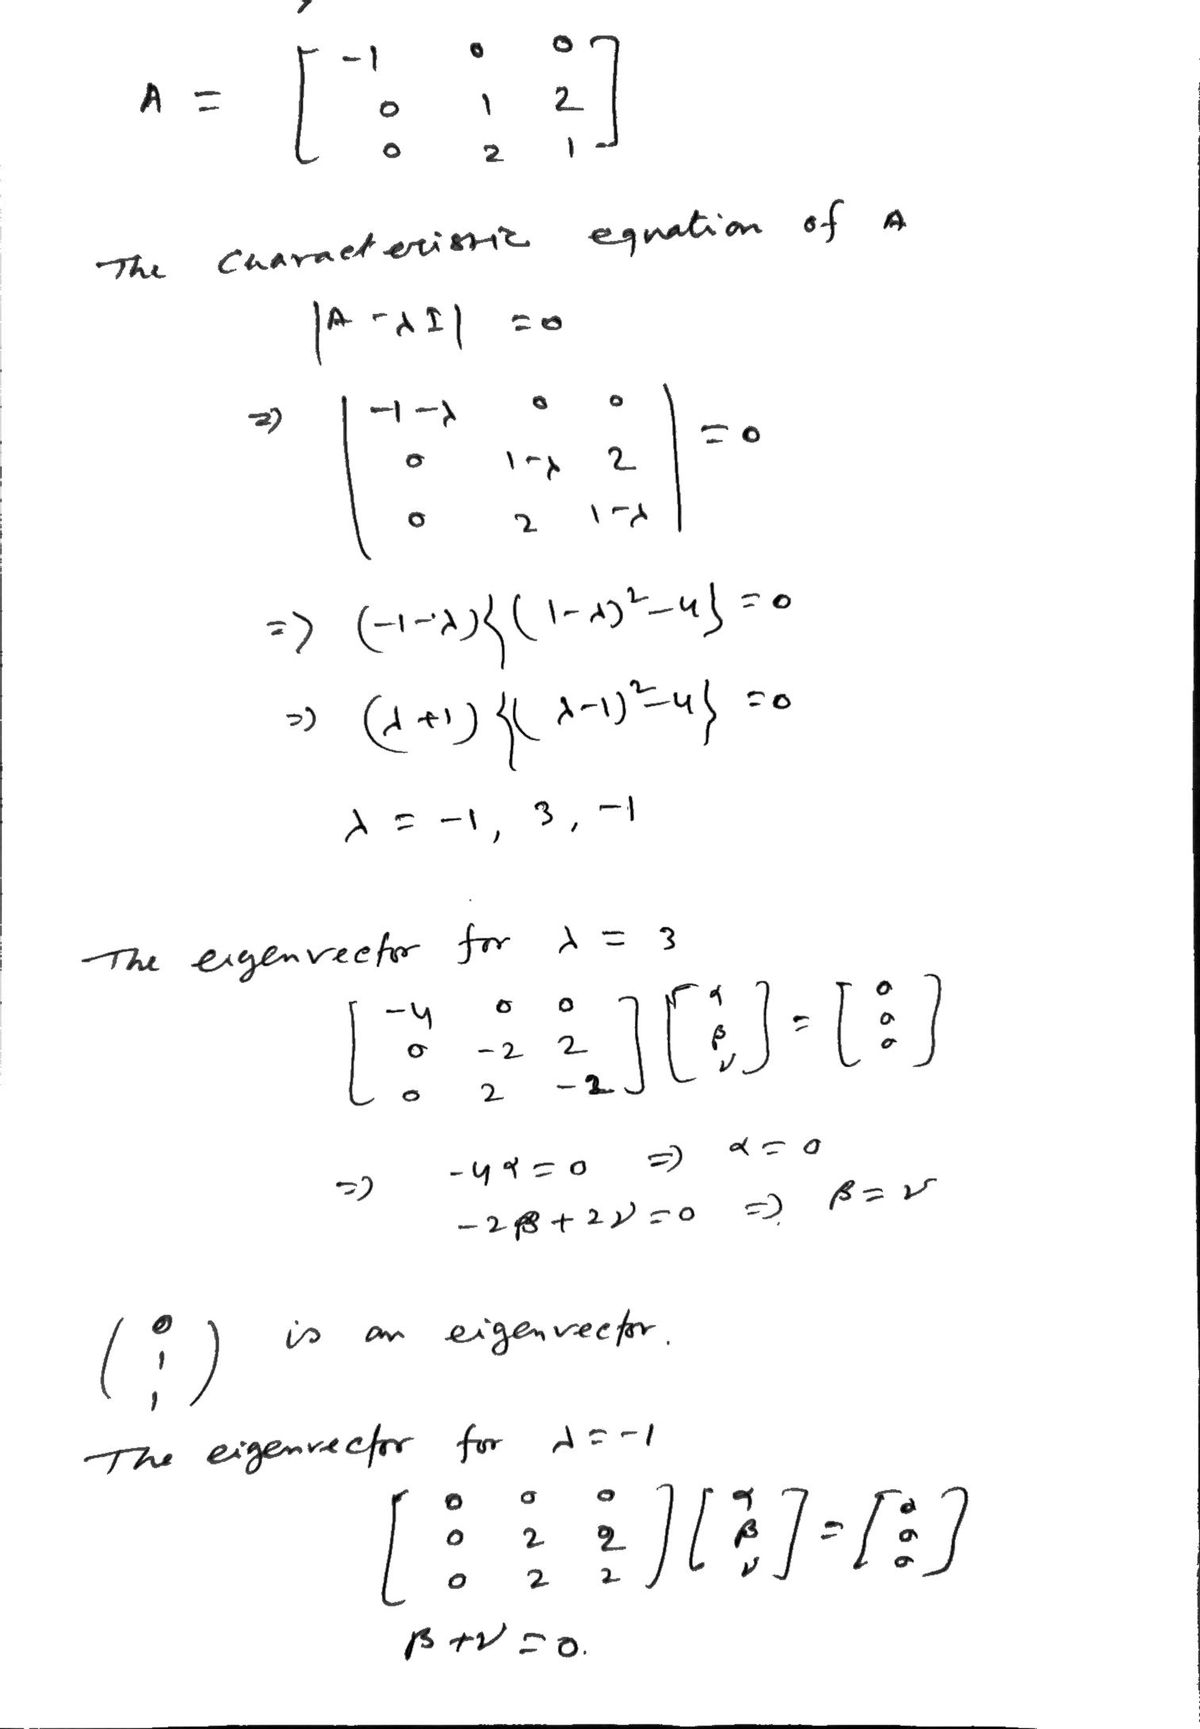 A = [ -1 0 0
0 1 2
0 2 1 ]
The characteristic equation of A
|A - λI| = 0
=> | -1-λ 0 0
0 1-λ 2 | = 0
0 2 1-λ |
=> (-1-λ){(1-λ)²-4} = 0
=> (λ+1){(λ-1)²-4} = 0
λ = -1, 3, -1
The eigenvector for λ = 3
[ -4 0 0 ] [ α ] = [ 0 ]
[ 0 -2 2 ] [ β ] [ 0 ]
[ 0 2 -2 ] [ ν ] [ 0 ]
=> -4α = 0 => α = 0
-2β + 2ν = 0 => β = ν
( 0
1
1 ) is an eigenvector.
The eigenvector for λ = -1
[ 0 0 0 ] [ α ] = [ 0 ]
[ 0 2 2 ] [ β ] [ 0 ]
[ 0 2 2 ] [ ν ] [ 0 ]
β + ν = 0.